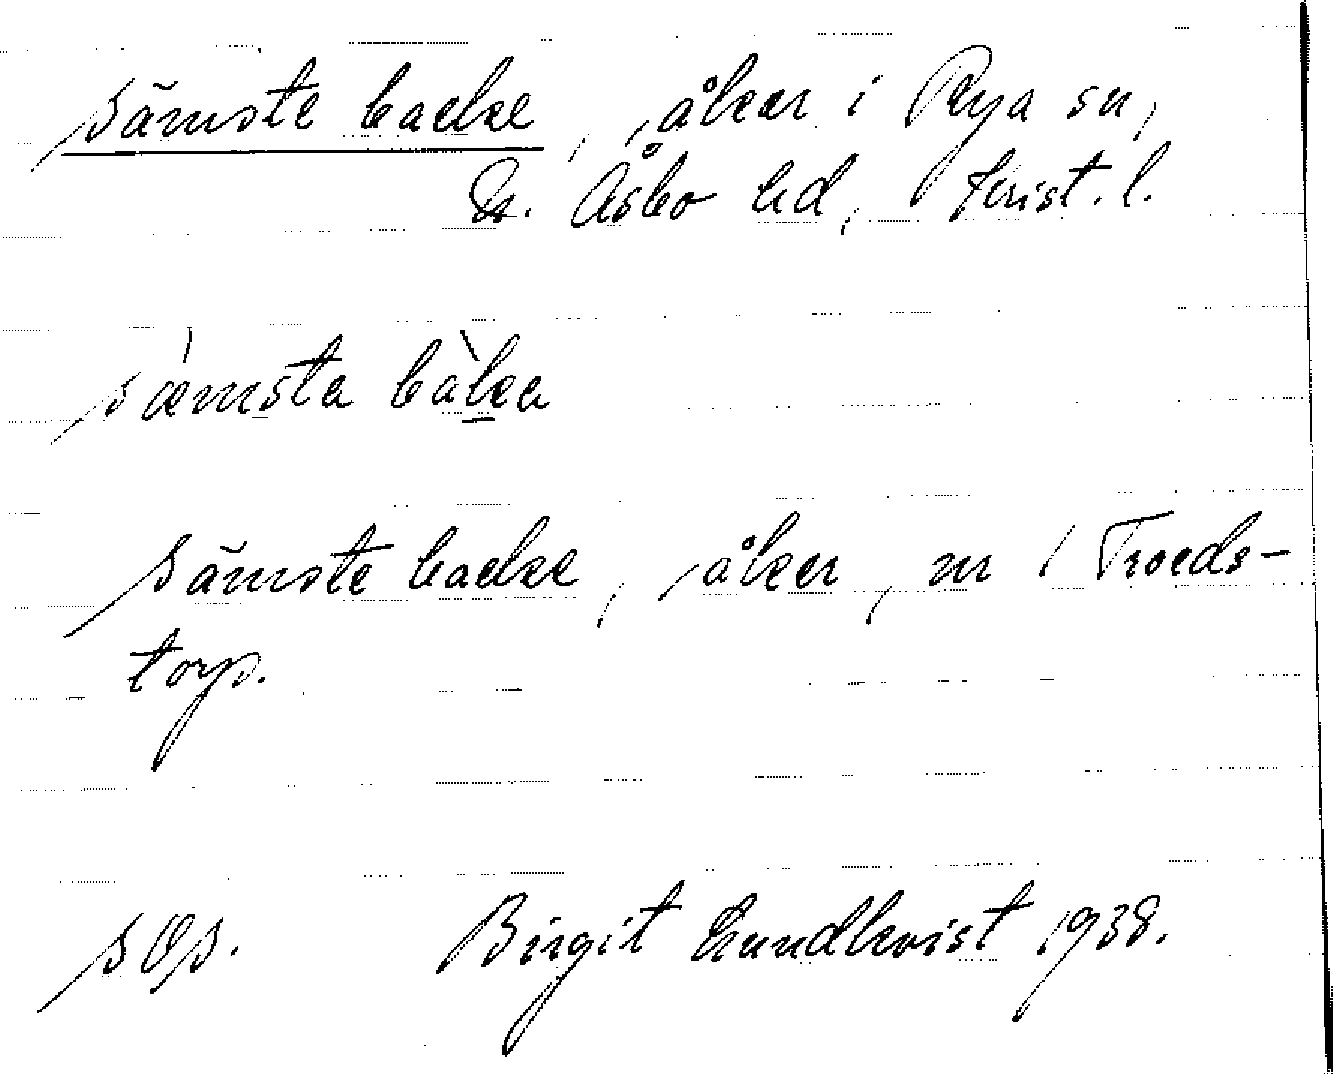 Sämste backe, åker i Rya sn,
N. Åsbo hd, Krist. l.
sæmsta bàka
Sämste backe, åker, nr 1 Troeds-
torp.
Birgit Lundkvist 1938.